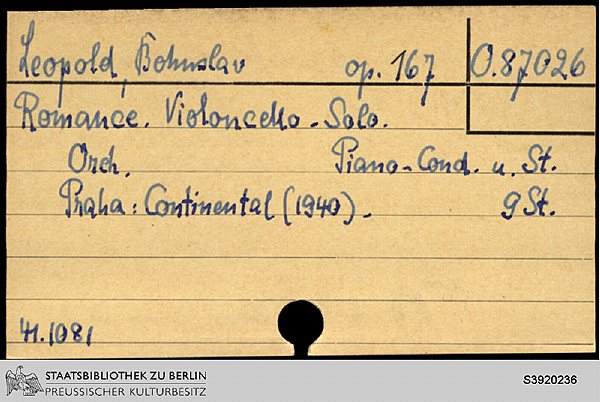 Leopold, Bohuslav op. 167 O.87026
Romance. Violoncello-Solo.
Orch. Piano-Cond. u. St.
Praha: Continental (1940). 9 St.
41.1081
STAATSBIBLIOTHEK ZU BERLIN
PREUSSISCHER KULTURBESITZ
S3920236